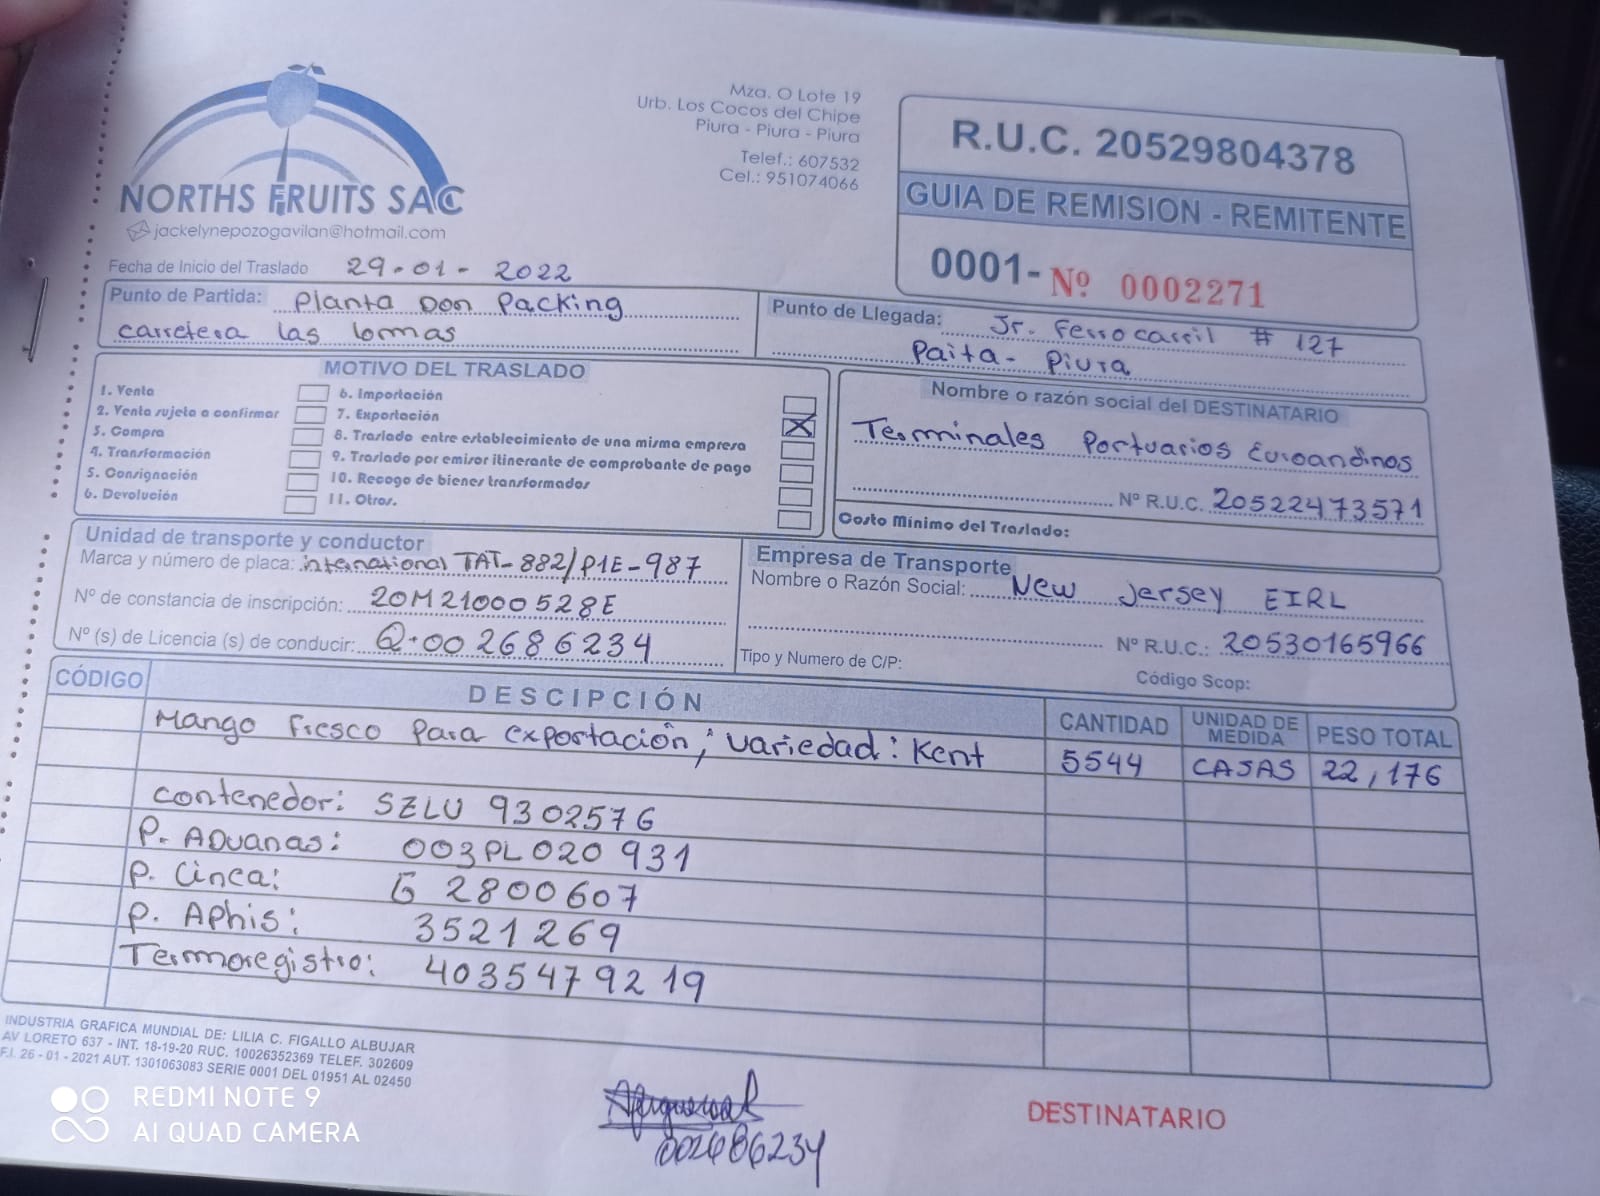 NORTHS FRUITS SAC
jackelynepozogavilan@hotmail.com
Mza. O Lote 19
Urb. Los Cocos del Chipe
Piura - Piura - Piura
Telef.: 607532
Cel.: 951074066
R.U.C. 20529804378
GUIA DE REMISION - REMITENTE
0001- Nº 0002271
Fecha de Inicio del Traslado 29-01-2022
Punto de Partida: Planta Don Packing
carretera las lomas
Punto de Llegada: Jr. Ferrocarril # 127
Paita - Piura
MOTIVO DEL TRASLADO
1. Venta
2. Venta sujeta a confirmar
3. Compra
4. Transformación
5. Consignación
6. Devolución
6. Importación
7. Exportación X
8. Traslado entre establecimiento de una misma empresa
9. Traslado por emisor itinerante de comprobante de pago
10. Recogo de bienes transformados
11. Otros.
Nombre o razón social del DESTINATARIO
Terminales Portuarios Euroandinos
Nº R.U.C. 20522473571
Costo Mínimo del Traslado:
Unidad de transporte y conductor
Marca y número de placa: international TAT-882/P1E-987
Nº de constancia de inscripción: 20M21000528E
Nº (s) de Licencia (s) de conducir: Q-002686234
Empresa de Transporte
Nombre o Razón Social: New Jersey EIRL
Nº R.U.C.: 20530165966
Tipo y Numero de C/P:
Código Scop:
CÓDIGO DESCIPCIÓN CANTIDAD UNIDAD DE MEDIDA PESO TOTAL
Mango fresco para exportación; variedad: Kent 5544 CAJAS 22,176
contenedor: SZLU 9302576
P. Aduanas: 003PL020931
P. Cinca: G 2800607
P. Aphis: 3521269
Termoregistro: 4035479219
INDUSTRIA GRAFICA MUNDIAL DE: LILIA C. FIGALLO ALBUJAR
AV LORETO 637 - INT. 18-19-20 RUC. 10026352369 TELEF. 302609
F.I. 26 - 01 - 2021 AUT. 1301063083 SERIE 0001 DEL 01951 AL 02450
002686234
DESTINATARIO
REDMI NOTE 9
AI QUAD CAMERA